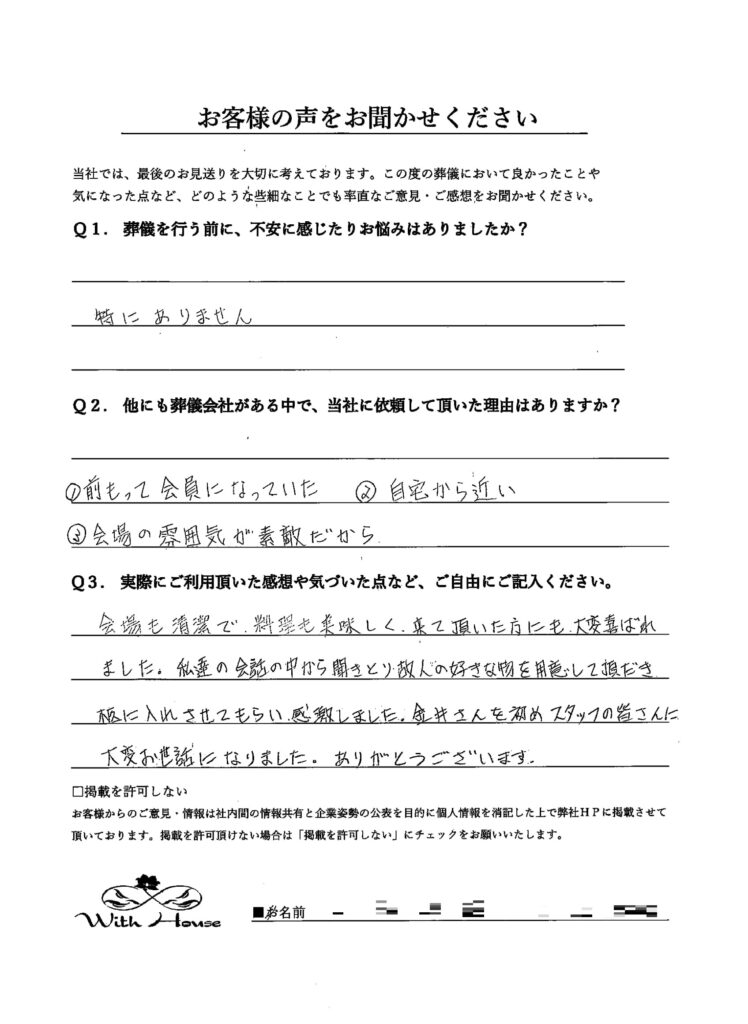 お客様の声をお聞かせください
当社では、最後のお見送りを大切に考えております。この度の葬儀において良かったことや
気になった点など、どのような些細なことでも率直なご意見・ご感想をお聞かせください。
Q1. 葬儀を行う前に、不安に感じたりお悩みはありましたか？
特にありません
Q2. 他にも葬儀会社がある中で、当社に依頼して頂いた理由はありますか？
①前もって会員になっていた ②自宅から近い
③会場の雰囲気が素敵だから
Q3. 実際にご利用頂いた感想や気づいた点など、ご自由にご記入ください。
会場も清潔で、料理も美味しく、来て頂いた方にも、大変喜ばれ
ました。私達の会話の中から聞きとり故人の好きな物を用意して頂だき
棺に入れさせてもらい、感激しました。金井さんを初めスタッフの皆さんに
大変お世話になりました。ありがとうございます。
□掲載を許可しない
お客様からのご意見・情報は社内間の情報共有と企業姿勢の公表を目的に個人情報を消記した上で弊社HPに掲載させて
頂いております。掲載を許可頂けない場合は「掲載を許可しない」にチェックをお願いいたします。
With House
■お名前